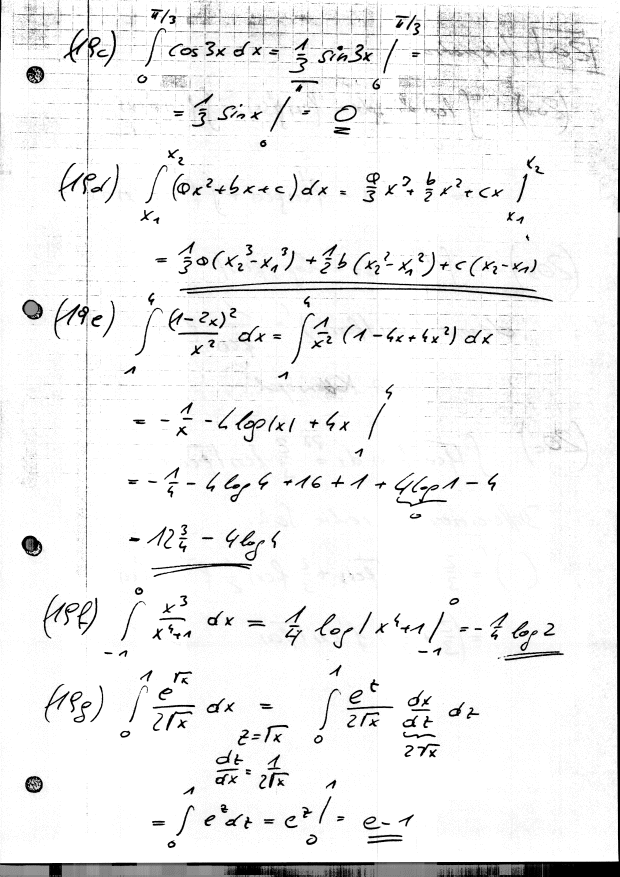 (19c) ∫₀^{π/3} cos3x dx = 1/3 sin3x |₀^{π/3} =
= 1/3 sinx |₀^π = 0
(19d) ∫_{x₁}^{x₂} (ax²+bx+c) dx = a/3 x³ + b/2 x² + cx |_{x₁}^{x₂}
= 1/3 a(x₂³-x₁³) + 1/2 b(x₂²-x₁²) + c(x₂-x₁)
(19e) ∫₁⁴ (1-2x)²/x² dx = ∫₁⁴ 1/x² (1-4x+4x²) dx
= -1/x - 4 log|x| + 4x |₁⁴
= -1/4 - 4 log 4 + 16 + 1 + 4 log 1 - 4
0
= 12 3/4 - 4 log 4
(19f) ∫₋₁⁰ x³/(x⁴+1) dx = 1/4 log|x⁴+1||₋₁⁰ = -1/4 log 2
(19g) ∫₀¹ e^{√x}/(2√x) dx = ∫₀¹ e^z/(2√x) dx/dz dz
z=√x 2√x
dz/dx = 1/(2√x)
= ∫₀¹ e^z dz = e^z |₀¹ = e-1